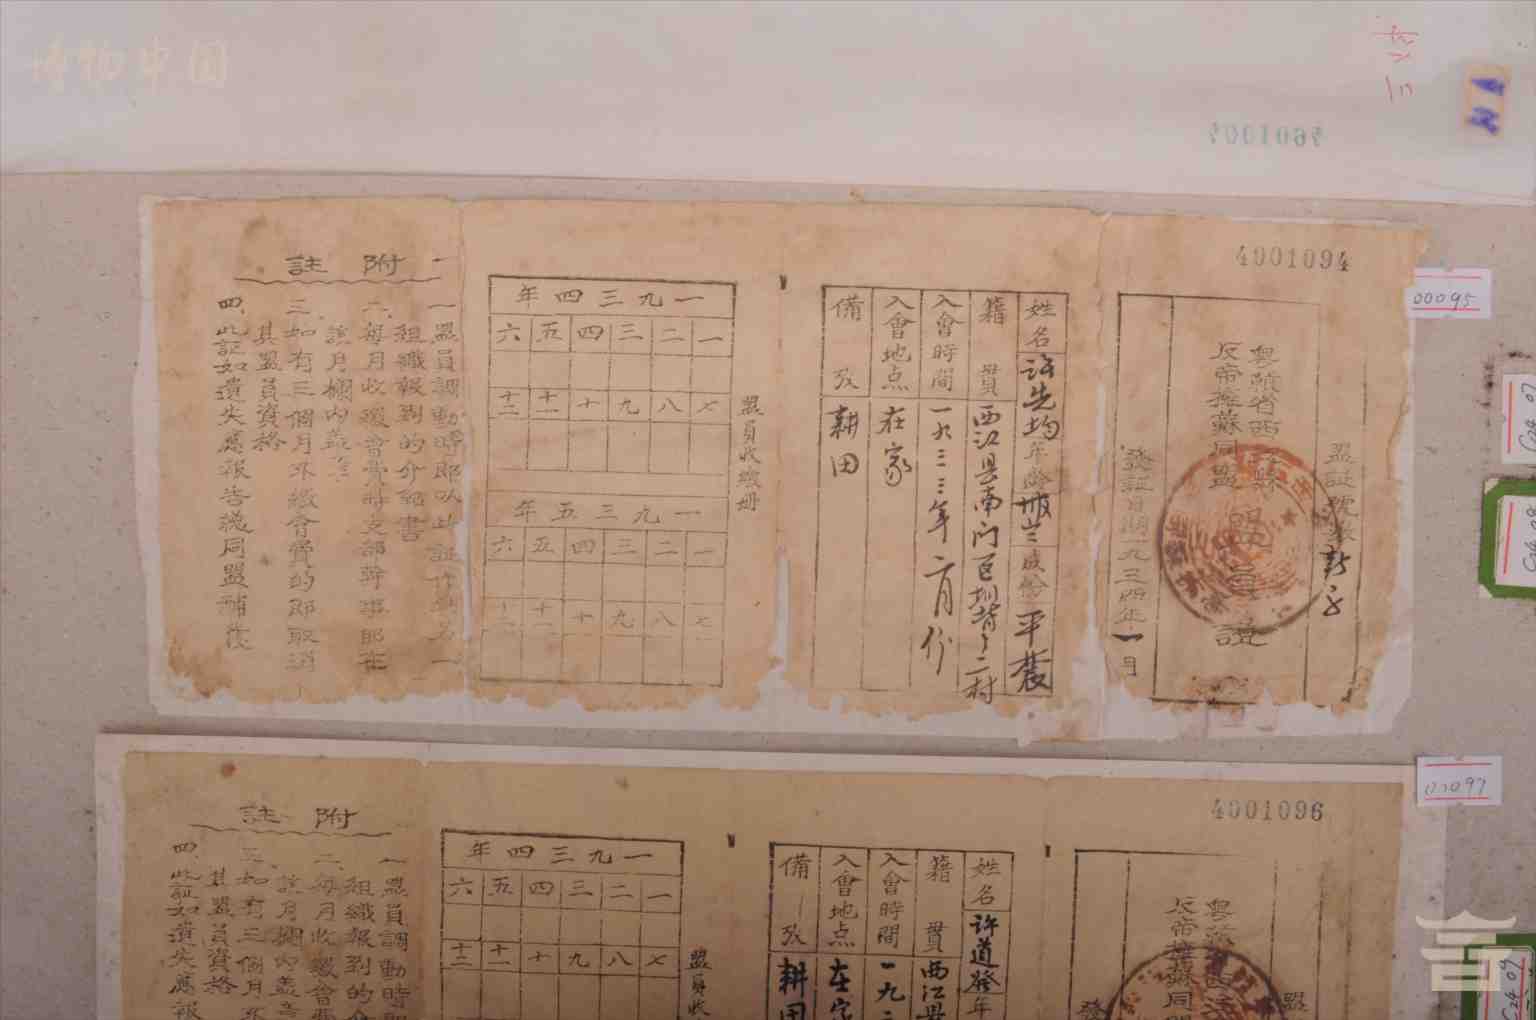 博物中国
4001094
00095
盟証號數
粤贛省西江縣
反帝擁蘇同盟
盟員證
發証日期一九三四年一月
姓名 許先均 年齡 成份 平農
籍貫 西江县南门
入會時間 一九三三年六月份
入會地点 在家
備攷 耕田
盟員收繳册
一九三四年
一 二 三 四 五 六
七 八 九 十 十一 十二
一九三五年
一 二 三 四 五 六
七 八 九 十 十一 十二
附註
一 盟員調動時即以此証作
組織報到的介紹書
二 每月收繳會費時支部幹事即在
該月欄內蓋章
三 如有三個月不繳會費的即取消
其盟員資格
四、此証如遺失應報告總同盟補發
4001096
00097
粤贛省西江
反帝擁蘇同盟
姓名 許道發 年
籍貫 西江县
入會時間 一九三
入會地点 在家
備攷 耕田
盟員收
一九三四年
一 二 三 四 五 六
七 八 九 十 十一 十二
附註
一 盟員調動時
組織報到的
二 每月收繳會費
該月欄內蓋
三 如有三個月不
其盟員資格
四、此証如遺失應報